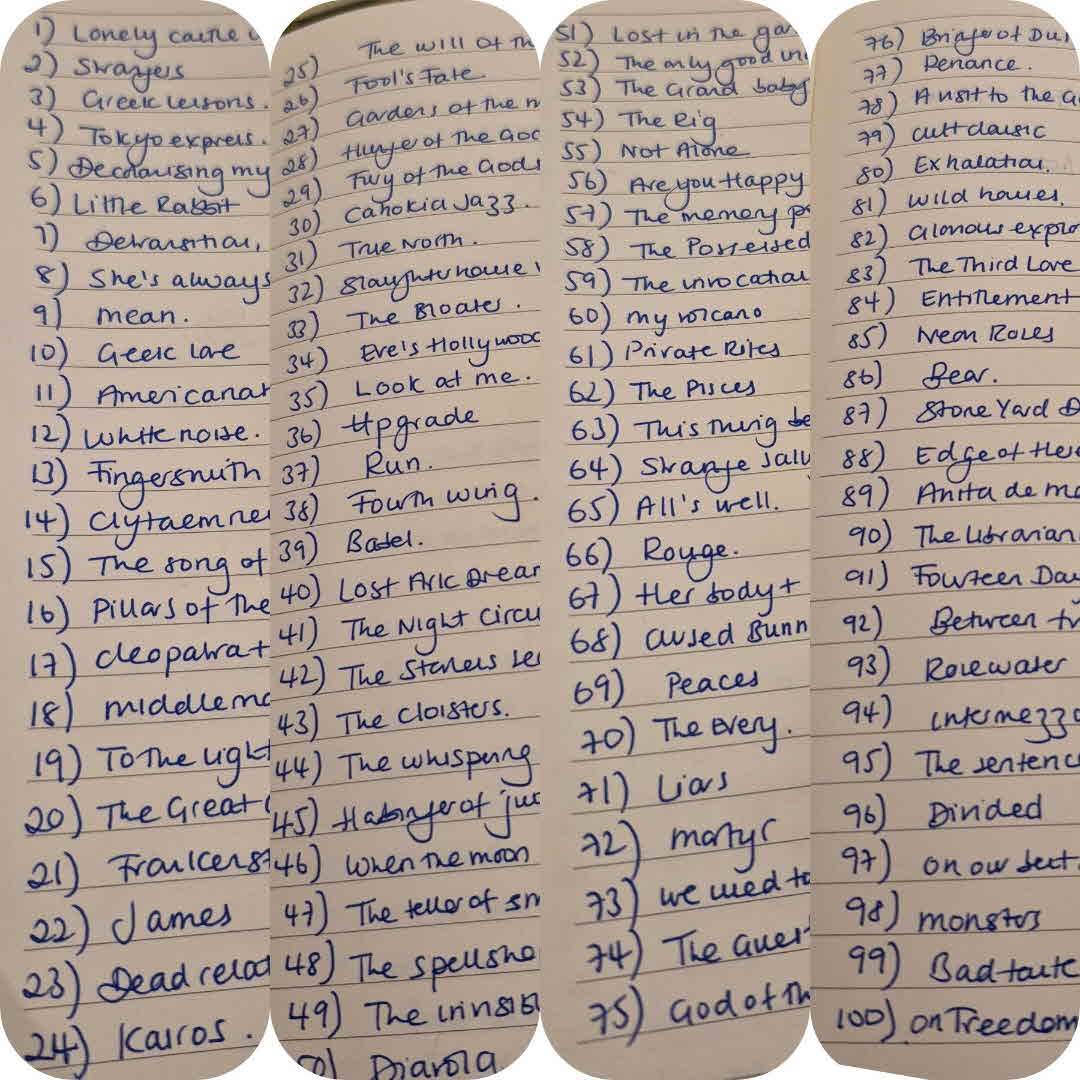 1) Lonely castle
2) Strangers
3) Greek lessons.
4) Tokyo express.
5) Decolonising my
6) Little Rabbit
7) Detransition,
8) She's always
9) mean.
10) Geek love
11) Americanah
12) White noise.
13) Fingersmith
14) Clytaemne
15) The song of
16) Pillars of the
17) cleopatra +
18) middlema
19) To the Light
20) The Great
21) Frankenst
22) James
23) Dead relat
24) Kairos.
25) The will of th
26) Fool's Fate.
27) Gardens of the m
28) Hunger of the God
29) Fury of the Gods
30) Cahokia Jazz.
31) True North.
32) Slaughterhouse
33) The Bloater.
34) Eve's Hollywood
35) Look at me.
36) Upgrade
37) Run.
38) Fourth wing.
39) Babel.
40) Lost Ark Drea
41) The Night Circu
42) The Starless se
43) The Cloisters.
44) The whispering
45) Habinger of jus
46) When the moon
47) The teller of sm
48) The spellsho
49) The invisibl
50) Diavola
51) Lost in the ga
52) The only good in
53) The Grand baby
54) The Rig
55) Not Alone
56) Are you Happy
57) The memory po
58) The Possessed
59) The invocation
60) my volcano
61) Private Rites
62) The Pisces
63) This thing be
64) Strange Sally
65) All's well.
66) Rouge.
67) Her body +
68) Cursed Bunn
69) Peaces
70) The Every.
71) Liars
72) martyr
73) we used to
74) The Guest
75) God of th
76) Bridge of Du
77) Penance.
78) A visit to the G
79) cult classic
80) Exhalation.
81) Wild houses.
82) Glorious explo
83) The Third Love
84) Entitlement
85) Neon Roses
86) Bear.
87) Stone Yard D
88) Edge of Her
89) Anita de mo
90) The Librarian
91) Fourteen Day
92) Between tw
93) Rosewater
94) intermezzo
95) The sentence
96) Divided
97) on our best
98) monsters
99) Bad taste
100) on Freedom